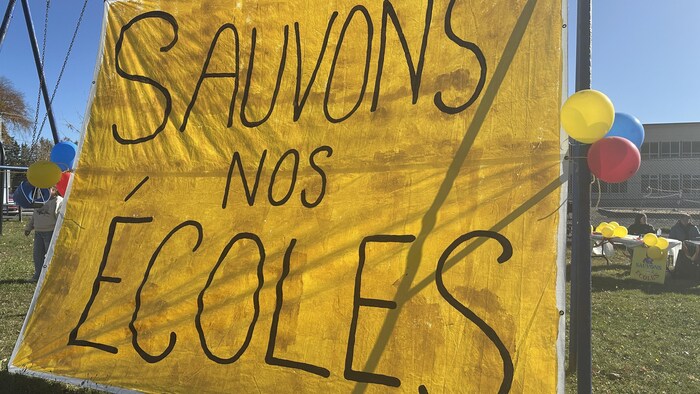 SAUVONS
NOS
ÉCOLES